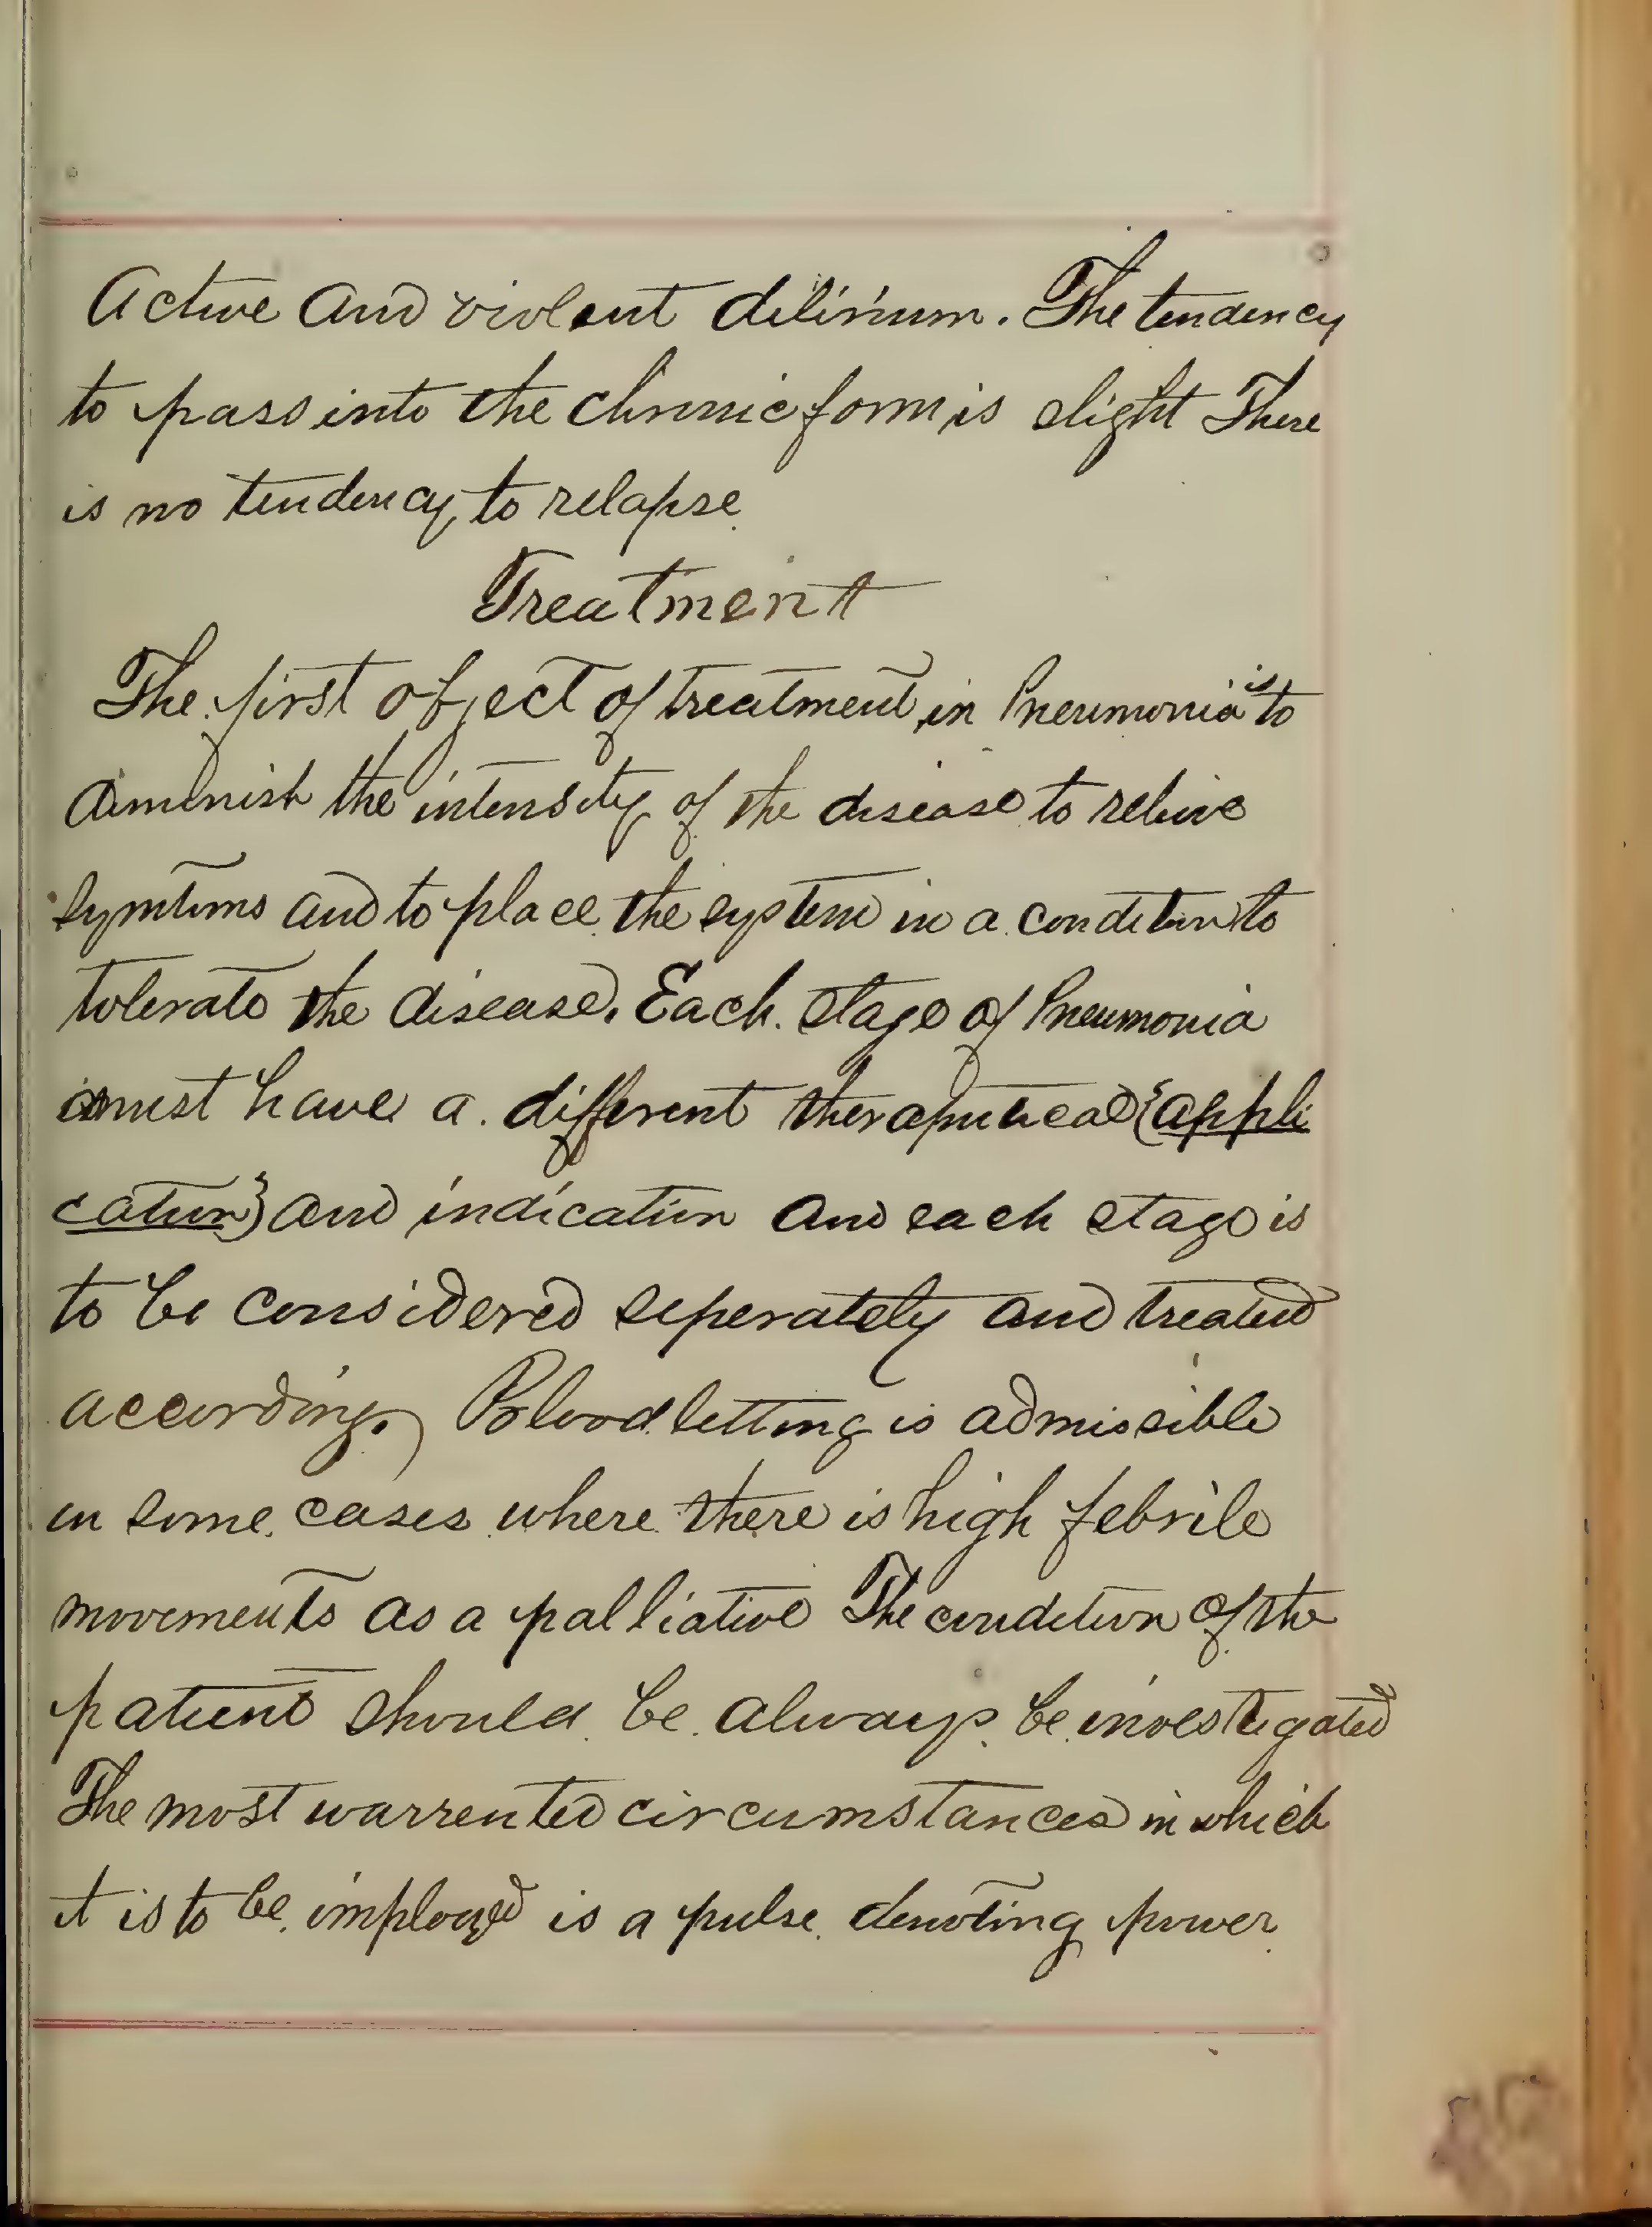 Active and violent dilirium. The tendency
to pass into the chronic form is slight There
is no tendency to relapse
Treatment
The first object of treatment in Pneumonia is to
diminish the intensity of the disease to relieve
symtoms and to place the system in a condition to
tolerate the disease. Each stage of Pneumonia
must have a different therapeutical {appli
cation} and indication and each stage is
to be considered seperately and treated
according. Blood letting is admissible
in some cases where there is high febrile
movements as a palliative The condition of the
patient should be always be investigated
The most warrented circumstances in which
it is to be imployed is a pulse denoting power